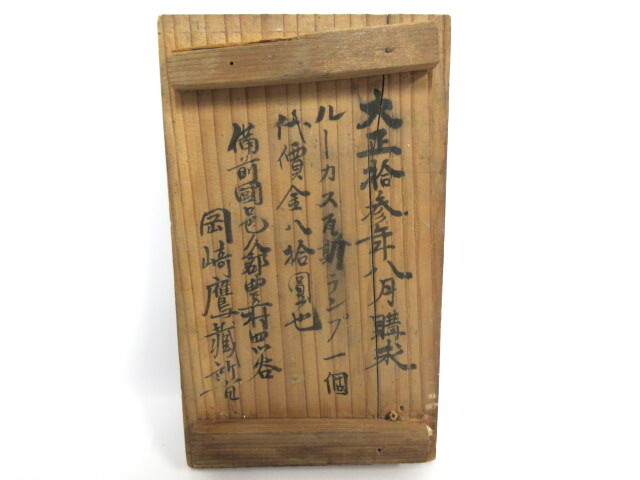 大正拾参年八月購求
ルーカス瓦斯ランプ一個
代價金八拾圓也
備前國邑久郡豊村四谷
岡崎鷹藏所有